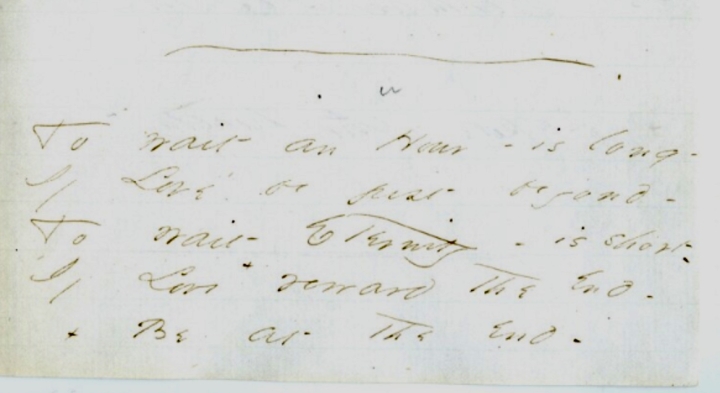 To wait an Hour - is long -
If Love be just beyond -
To wait Eternity - is short
If Love + reward the End -
+ Be at the End -